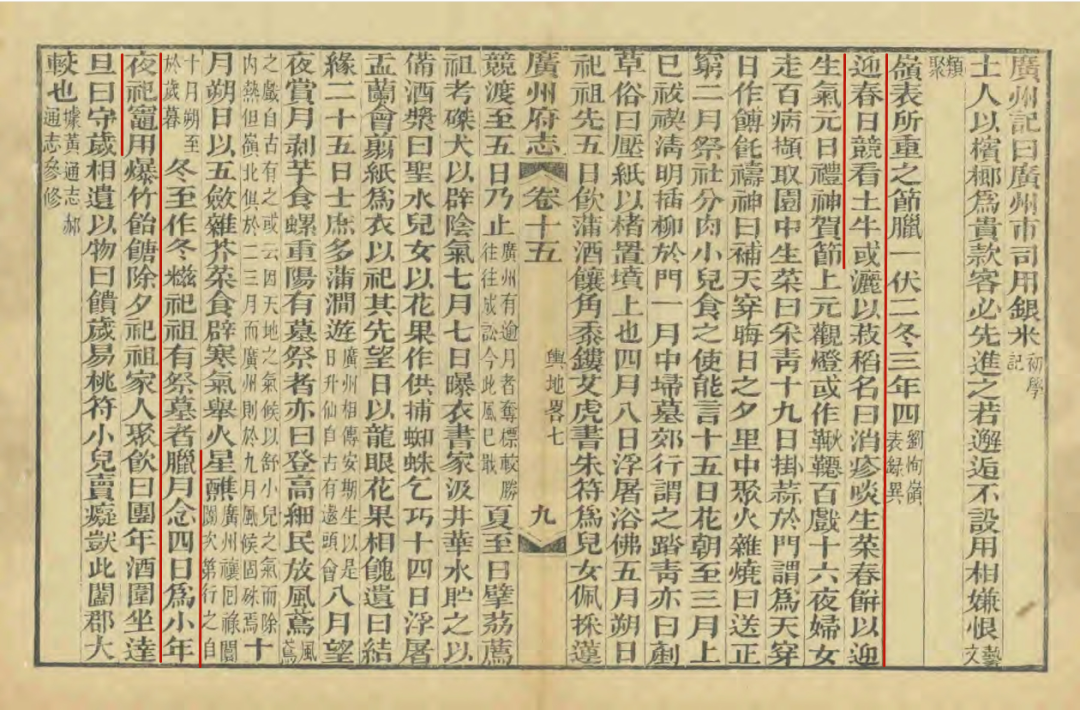 廣州記曰廣州市司用銀米初學記
士人以檳榔為貴款客必先進之若邂逅不設用相嫌恨藝文
類聚
嶺表所重之節臘一伏二冬三年四劉恂嶺表錄異
迎春日競看土牛或灑以菽稻名曰消疹啖生菜春餅以迎
生氣元日禮神賀節上元觀燈或作鞦韆百戲十六夜婦女
走百病擷取園中生菜曰采靑十九日掛蒜於門謂為天穿
日作餺飥禱神曰補天穿晦日之夕里中聚火雜燒曰送正
窮二月祭社分肉小兒食之使能言十五日花朝至三月上
巳祓禊淸明插柳於門一月中埽墓郊行謂之踏靑亦曰剷
草俗曰壓紙以楮置墳上也四月八日浮屠浴佛五月朔日
祀祖先五日飲蒲酒饟角黍鏤艾虎書朱符為兒女佩採蓮
廣州府志 卷十五 輿地畧七 九
競渡至五日乃止廣州有逾月者奪標較勝往往成訟今此風已戢夏至日擘荔薦
祖考磔犬以辟陰氣七月七日曝衣書家汲井華水貯之以
備酒漿曰聖水兒女以花果作供捕蜘蛛乞巧十四日浮屠
盂蘭會剪紙為衣以祀其先望日以龍眼花果相餽遺曰結
緣二十五日士庶多蒲澗遊廣州相傳安期生以是日升仙自古有遨頭會八月望
夜賞月剥芋食螺重陽有墓祭者亦曰登高細民放風鳶風鳶
之戲自古有之或云因天地之氣候以舒小兒之氣而除內熱但嶺北俱於二三月而廣州則於九月風候固殊焉十
月朔日以五斂雜芥菜食辟寒氣舉火星醮廣州禳囘祿闤闠次第行之自
十月朔至於歲暮冬至作冬糍祀祖有祭墓者臘月念四日為小年
夜祀竈用爆竹飴餹除夕祀祖家人聚飲曰團年酒圍坐達
旦曰守歲相遺以物曰饋歲易桃符小兒賣癡獃此闔郡大
較也據黃通志郝通志參修